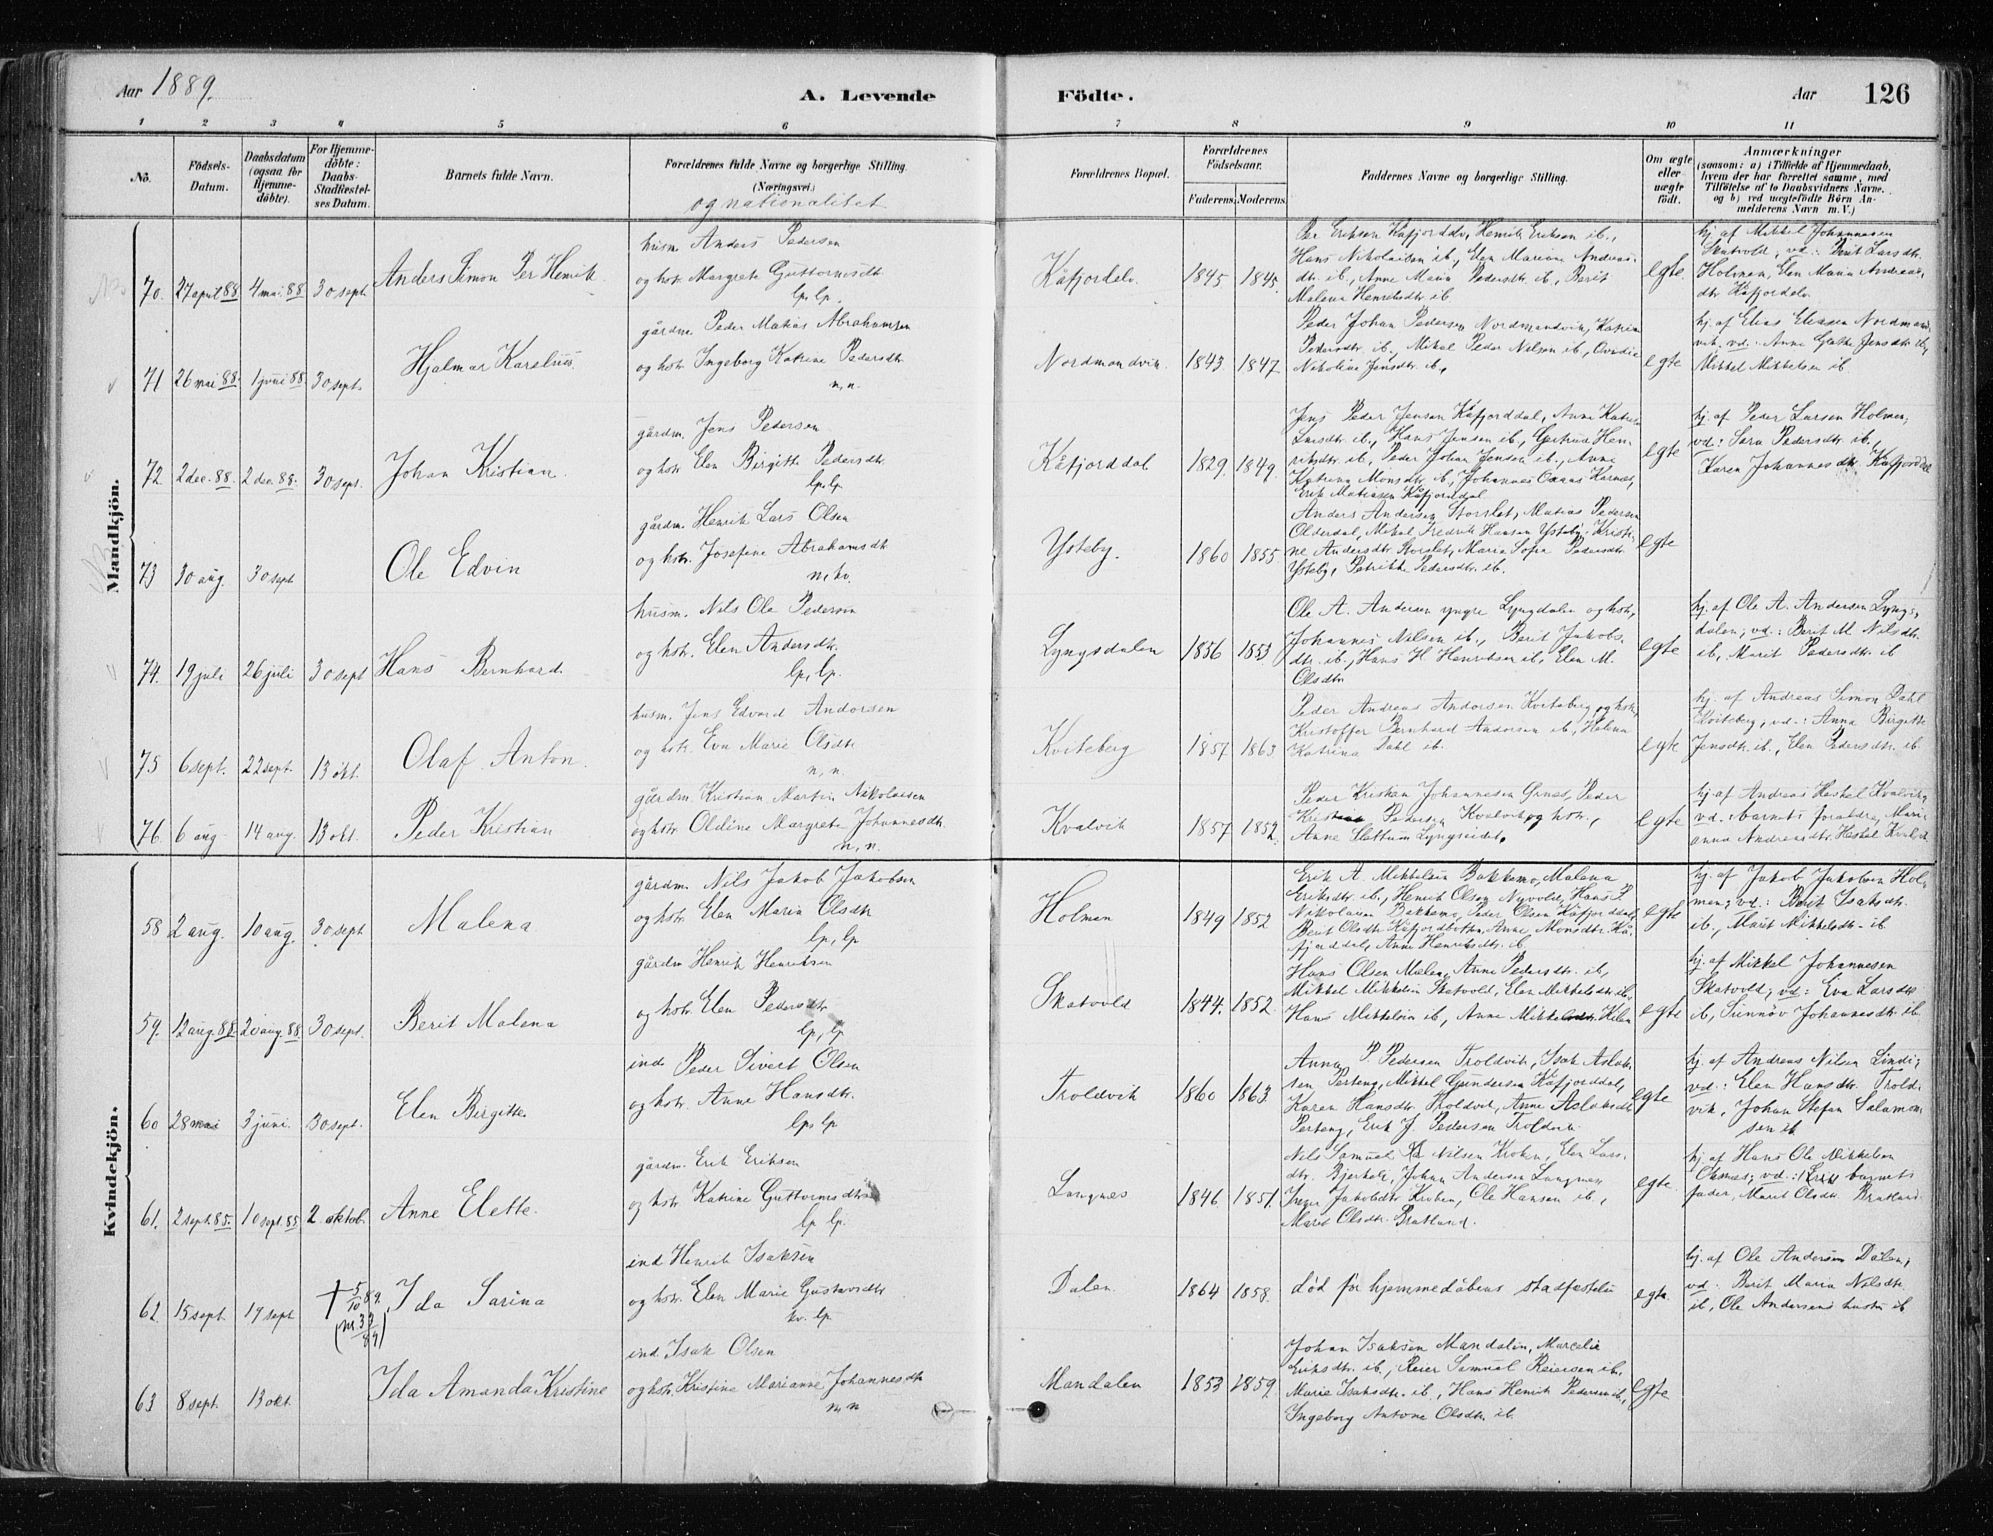 Aar 1889.
A. Levende Födte.
Aar 126
1 2 3 4 5 6 7 8 9 10 11
No.
Födsels-Datum.
Daabsdatum (ogsaa for Hjemme-döbte).
For Hjemme-döbte: Daabs-Stadfæstel-ses Datum.
Barnets fulde Navn.
Forældrenes fulde Navne og borgerlige Stilling. (Næringsvei.)
og nationalitet
Forældrenes Bopæl.
Forældrenes Födselsaar.
Faderens. Moderens.
Faddernes Navne og borgerlige Stilling.
Om ægte eller uægte födt.
Anmærkninger
(saasom: a) i Tilfælde af Hjemmedaab, hvem der har forrettet samme, med Tilföielse af to Daabsvidners Navne. og b) ved uægtefödte Börn An-melderens Navn m.V.)
Mandkjön.
70. 27 april 88 4 mai 88 30 sept. Anders Simon Per Henrik
husm. Anders Pedersen
og hstr. Margrete Guttormsdtr.
lp. lp.
Kåfjordelv. 1845 1845.
Per Eriksen Kåfjordelv, Henrik Eriksen ib.,
Hans Nikolaisen ib., Elen Mariane Andreas-
dtr. ib., Anne Maria Pedersdtr. ib., Berit
Malena Henriksdtr. ib.
egte.
hj. af Mikkel Johannesen
Skatvold, vd.: Berit Larsdtr.
Holmen, Elen Maria Andreas-
dtr. Kåfjordelv.
71 26 mai 88. 1 juni 88. 30 sept. Hjalmar Karelius.
gårdm. Peder Matias Abrahamsen
og hstr. Ingeborg Katrine Pedersdtr.
n, n.
Nordmandvik. 1843 1847
Peder Johan Pedersen Nordmandvik, Katrine
Pedersdtr. ib., Mikal Peder Nilsen ib.,
Nikoline Jensdtr. ib.
egte
hj. af Elias Eliasen Nordmand-
vik. vd.: Anne Jensdtr. ib.,
Mikkel Mikkelsen ib.
72. 2 dec. 88. 2 dec. 88. 30 sept. Johan Kristian.
gårdm. Jens Pedersen
og hstr. Elen Birgitte Pedersdtr.
lp. lp.
Kåfjorddal 1829. 1849.
Jens Peder Jensen Kåfjorddal, Anne Katrine
Larsdtr. ib., Hans Jensen ib., Gertrud Hen-
riksdtr. ib., Peder Johan Jensen ib., Anne
Katrina Monsdtr. ib., Johannes Karnes,
Erik Matiasen Kåfjorddal
egte
hj. af Peder Larsen Holmen;
vd: Sara Pedersdtr. ib.,
Karen Johannesdtr. Kåfjorddal
73 30 aug. 30 sept Ole Edvin
gårdm. Henrik Lars Olsen
og hstr. Josefine Abrahamsdtr.
n, kv.
Ysteby. 1860 1855.
Anders Andersen Storslet, Matias Pedersen
Olderdal, Mikal Fredrik Hansen Ysteby, Kristi-
ne Andersdtr. Storslet, Maria Sofia Pedersdtr.
Ysteby, Petrikke Pedersdtr. ib.
egte
74. 19 juli 26 juli 30 sept Hans Bernhard.
husm. Nils Ole Pedersen
og hstr. Elen Andersdtr.
lp, lp.
Lyngsdalen 1856 1853.
Ole A. Andersen yngre Lyngdalen og hstr.,
Johannes Nilsen ib., Berit Jakobs-
dtr. ib., Hans H. Henriksen ib., Elen M.
Olsdtr.
egte
hj. af Ole A. Andersen Lyngs-
dalen; vd.: Berit M. Nilsdtr.
ib., Marit Pedersdtr. ib
75 6 sept. 22 sept. 13 okt. Olaf Anton.
husm. Jens Edvard Andorsen
og hstr. Eva Marie Olsdtr.
n, n.
Kviteberg 1857 1863
Peder Andreas Andorsen Kviteberg og hstr.,
Kristoffer Bernhard Andorsen ib., Helena
Katrina Dahl ib.
egte
hj. af Andreas Simon Dahl
Kviteberg; vd.: Anna Birgitte
Jensdtr. ib., Elen Pedersdtr. ib.
76. 6 aug. 14 aug. 13 okt. Peder Kristian
gårdm. Kristian Martin Nikolaisen
og hstr. Oldine Margrete Johannesdtr.
n, n.
Kvalvik 1857 1852.
Peder Kristian Johannesen Grnes, Peder
Kristian Pedersen Kvalvik og hstr.,
Anne Slettum Lyngseidet.
egte
hj. af Andreas Heskel Kvalvik;
vd. barnets forældre, Mari-
anna Andreasdtr. Heskel Kvalvik
Kvindekjön.
58 2 aug. 10 aug. 30 sept Malena
gårdm. Nils Jakob Jakobsen
og hstr. Elen Maria Olsdtr
lp, lp
Holmen 1849 1852
Erik A. Mikkelsen Bakkemo, Malena
Eriksdtr. ib., Henrik Olsen Nyvold, Hans P.
Nikolaisen Bakkemo, Peder Olsen Kåfjorddal,
Berit Olsdtr. Kåfjordbotn, Anne Monsdtr. Kå-
fjorddal, Anne Henriksdtr. ib
egte
hj. af Jakob Jakobsen Hol-
men; vd.: Berit Isaksdtr.
ib., Marit Mikkelsdtr. ib
59. 12 aug. 88. 20 aug. 88. 30 sept. Berit Malena
gårdm Henrik Henriksen
og hstr. Elen Pedersdtr
lp, lp
Skatvold 1844. 1852.
Hans Olsen Mælen, Anne Pedersdtr. ib,
Mikkel Mikkelsen Skatvold, Elen Mikkelsdtr. ib.,
Hans Mikkelsen ib, Anne Mikkelsdtr.
egte
hj. af Mikkel Johannesen
Skatvold; vd: Eva Larsdtr
ib, Sünnöv Johannesdtr. ib.
60 28 mai 3 juni. 30 sept. Elen Birgitte
ind Peder Sivert Olsen
og hstr. Anne Hansdtr.
lp. lp
Troldvik 1860 1863.
Anna P. Pedersen Troldvik, Isak Aslak-
sen Perteng, Mikkel Gundersen Kåfjorddal,
Karen Hansdtr. Troldvik, Anne Aslaksdtr.
Perteng, Erik J. Pedersen Troldvik
egte
hj. af Andreas Nilsen Lindi;
vd.: Elen Hansdtr. Trold-
vik, Johan Stefan Salamon-
sen ib
61. 2 sept. 85. 10 sept. 85 2 oktob. Anne Elette.
gårdm. Erik Eriksen
og hstr. Katrine Guttormsdtr
lp lp.
Langnes 1846. 1851.
Nils Samuel Nilsen Kroken, Elen Lars-
dtr. Bjerkeli, Johan Andersen Langnes,
Inger Jakobsdtr. Kroken, Ole Hansen ib.,
Marit Olsdtr. Bratland.
egte.
hj. af Hans Ole Mikkelsen
vd.: Erik barnets
fader, Marit Olsdtr. Bratland
62. 15 sept. 17 sept † 5/10 89. (nr 33/89) Ida Sarina
ind Henrik Isaksen
og hstr. Elen Marie Gustavsdtr
kv. lp.
Dalen 1864 1858.
död för hjemmedåbens stadfæstelse
egte.
hj. af Ole Andersen Dalen;
vd. Berit Maria Nilsdtr.
ib, Ole Andersens hustru ib
63 8 sept. 13 okt. Ida Amanda Kristine
ind. Isak Olsen
og hstr. Kristine Marianne Johannesdtr.
n, n
Mandalen 1853 1859.
Johan Isaksen Mandalen, Marcelie
Eriksdtr. ib., Reier Samual Reiersen ib.,
Marie Isaksdtr. ib., Hans Henrik Pedersen ib.,
Ingeborg Antone Olsdtr. ib.
egte